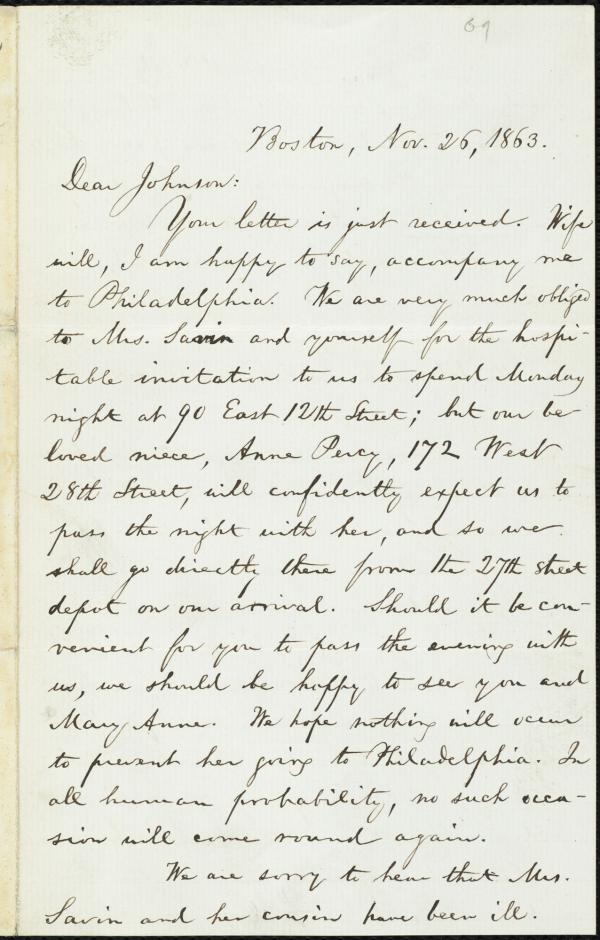 69
Boston, Nov. 26, 1863.
Dear Johnson:
Your letter is just received. Wife
will, I am happy to say, accompany me
to Philadelphia. We are very much obliged
to Mrs. Savin and yourself for the hospi-
table invitation to us to spend Monday
night at 90 East 12th Street; but our be
loved niece, Anne Percy, 172 West
28th Street, will confidently expect us to
pass the night with her, and so we
shall go directly there from the 27th street
depot on our arrival. Should it be con-
venient for you to pass the evening with
us, we should be happy to see you and
Mary Anne. We hope nothing will occur
to prevent her going to Philadelphia. In
all human probability, no such occa-
sion will come round again.
We are sorry to hear that Mrs.
Savin and her cousin have been ill.